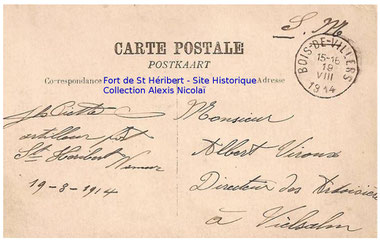 S. M.
CARTE POSTALE
POSTKAART
Correspondance
Adresse
Fort de St Héribert - Site Historique
Collection Alexis Nicolaï
BOIS-DE-VILLERS
15-16
19
VIII
1914
artilleur fort
St Héribert Namur
19-8-1914
Monsieur
Albert Viroux
Directeur des Ardoisière
à Vielsalm